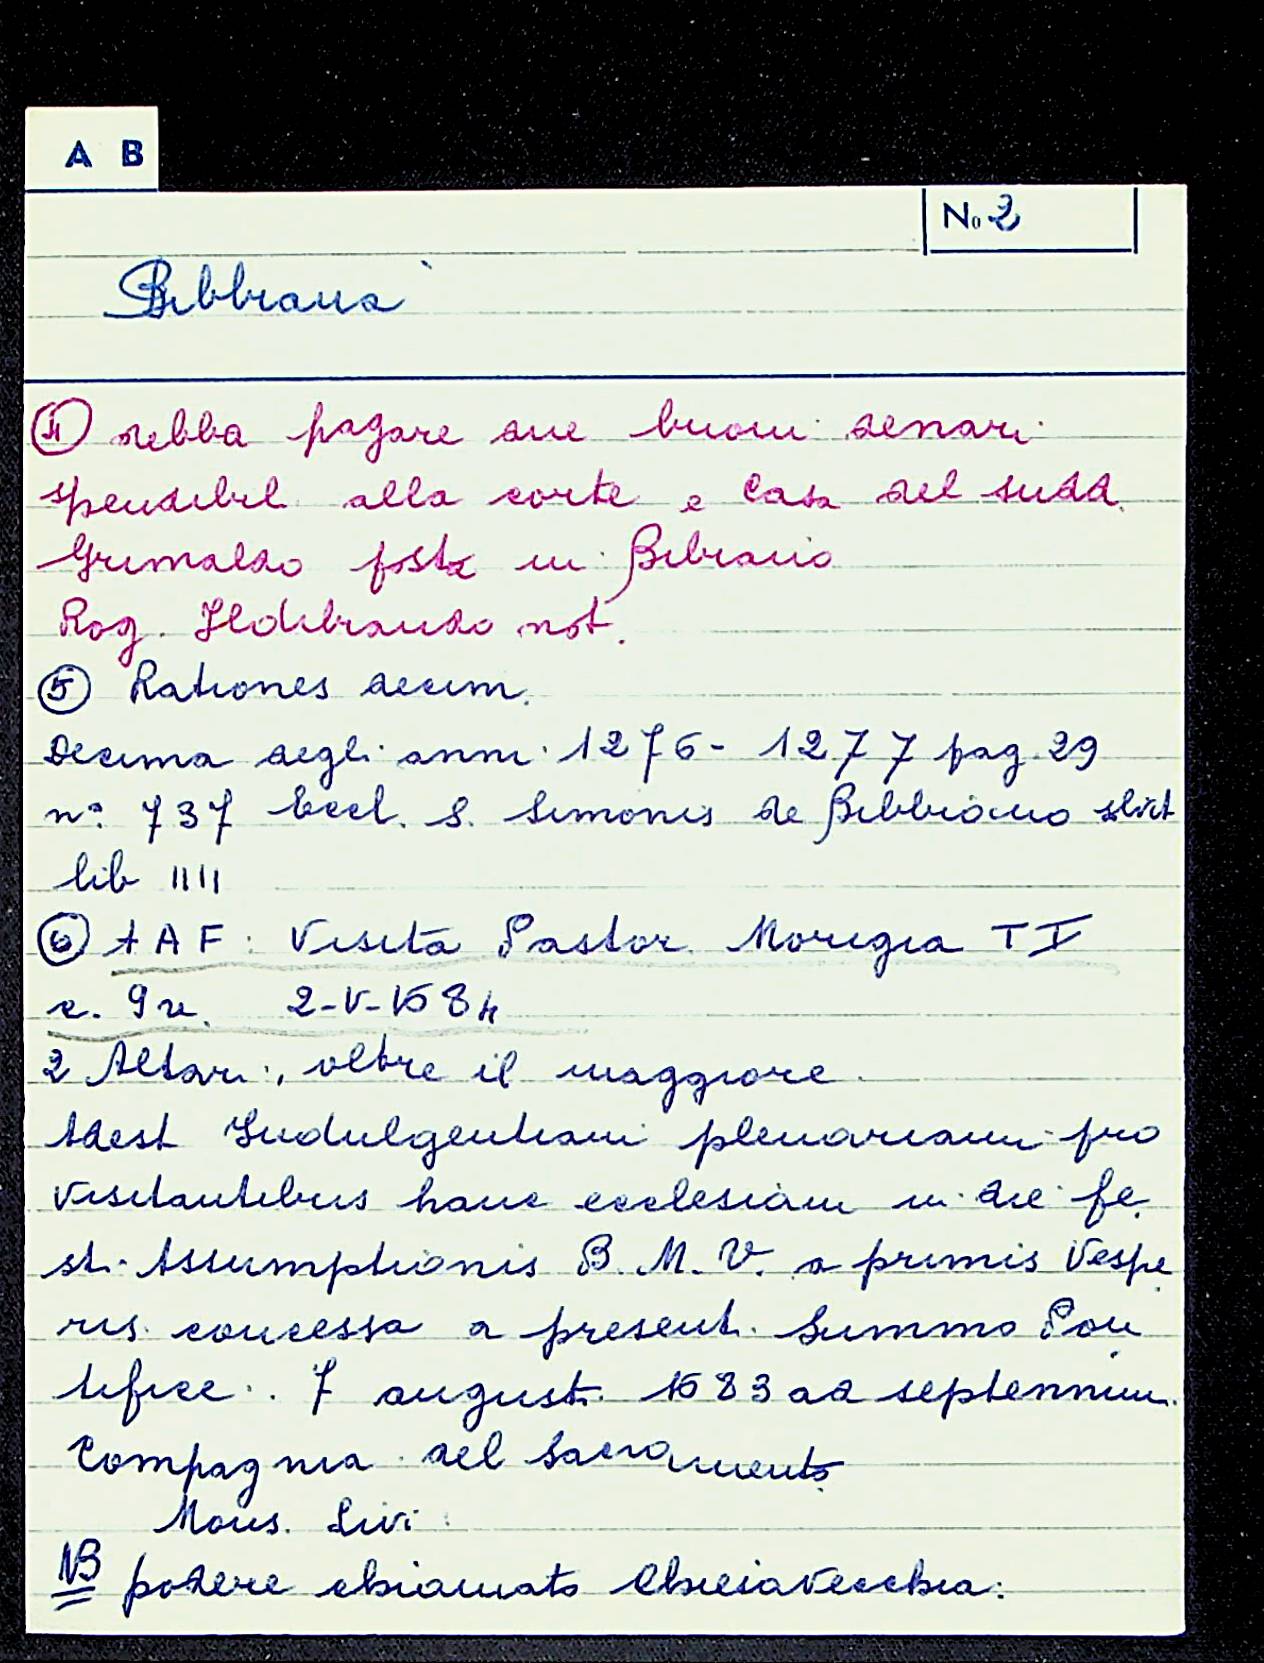 A B
No 2
Bibbiana
④ debba pagare due buoni denari
spendibil alla corte e Casa del sudd.
Grimaldo posta in Bibiano
Rog. Ildibrando not.
⑤ Rationes decim.
Decima degli anni 1276 - 1277 pag. 29
nº 737 Eccl. S. Simonis de Bibbiano
lib IIII
⑥ A A F: Visita Pastor. Morigia T I
c. 9v. 2-V-1584
2 Altari, oltre il maggiore
Adest Indulgentiam plenariam pro
visitantibus hanc ecclesiam in die fe
sti Assumptionis B. M. V. a primis Vespe
ris concessa a present. Summo Pon
tifice. 7 augusti 1583 ad septennium.
Compagnia del Sacramento
Mons. Livi:
NB podere chiamato Chiesavecchia.